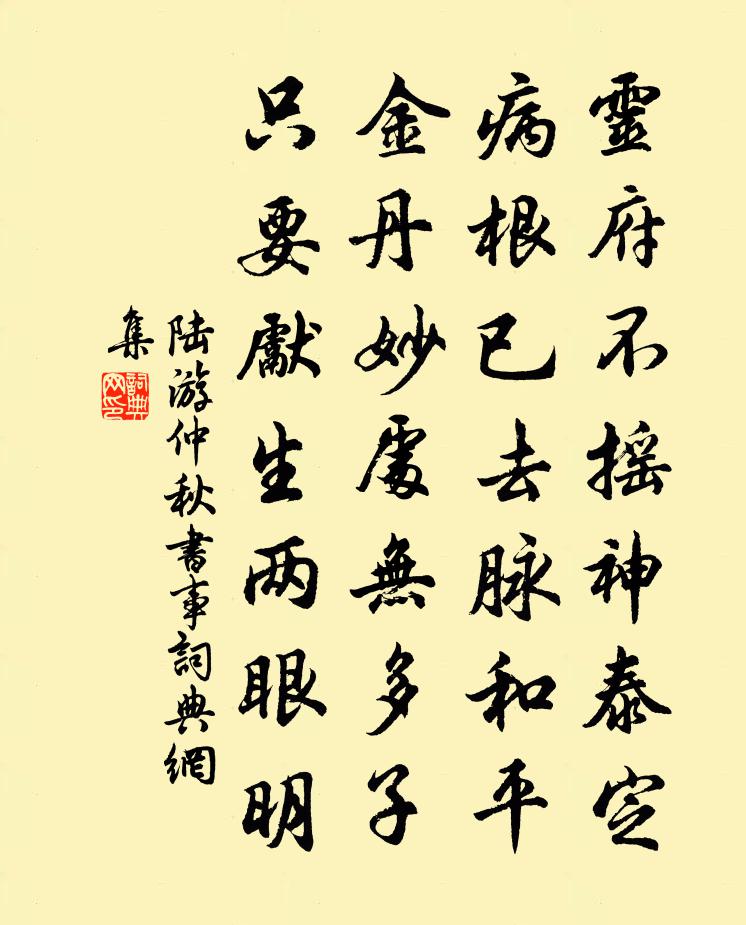 靈府不摇神泰定
病根已去脉和平
金丹妙處無多子
只要獻生两眼明
陆游仲秋書事詞典網
集
詞典
网印